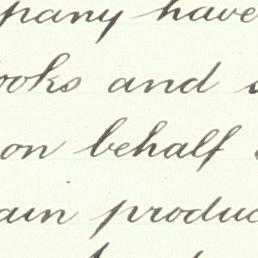 pany have
ooks and
on behalf
ain produc